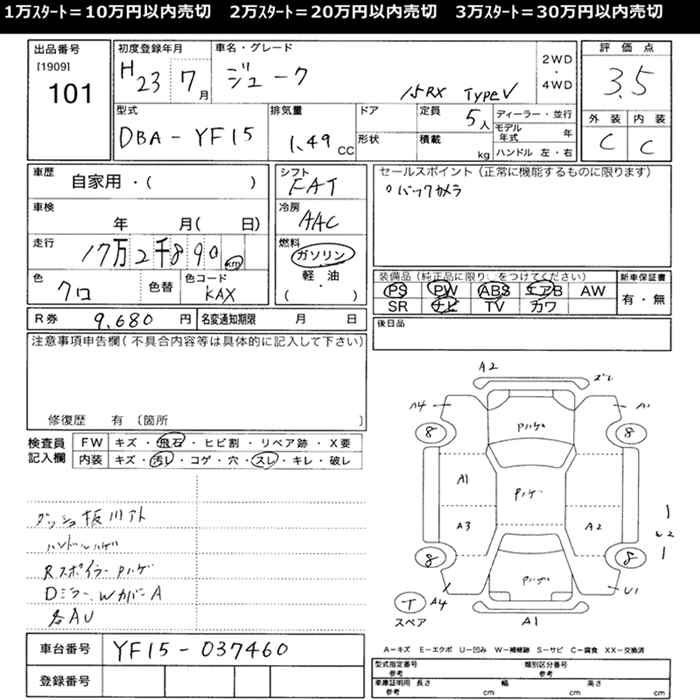 1万ｽﾀｰﾄ＝10万円以内売切　2万ｽﾀｰﾄ＝20万円以内売切　3万ｽﾀｰﾄ＝30万円以内売切
出品番号
[1909]
101
初度登録年月
H23 7月
車名・グレード
ジューク
15RX TypeV
2WD
・
4WD
評価点
3.5
外装 内装
C C
型式
DBA-YF15
排気量
1.49 CC
ドア
形状
定員
5人
積載
kg
ディーラー・並行
モデル年式 年
ハンドル 左・右
車歴
自家用・( )
車検
年 月( 日)
走行
17万2千890km
色
クロ
色替
色コード
KAX
シフト
FAT
冷房
AAC
燃料
ガソリン
軽・油
( )
セールスポイント(正常に機能するものに限ります)
○バックカメラ
装備品(純正品に限り、をつけてください)
PS PW ABS エアB AW
SR ナビ TV カワ
新車保証書
有・無
R券 9,680 円
名変通知期限 月 日
後日品
注意事項申告欄(不具合内容等は具体的に記入して下さい)
修復歴 有〔箇所 〕
検査員
記入欄
FW キズ・飛石・ヒビ割・リペア跡・X要
内装 キズ・汚レ・コゲ・穴・スレ・キレ・破レ
ハンドルハゲ
RスポイラーPハゲ
Dミラー、WカバーA
各AU
A2
A4
A1
8
8
Pハゲ
A1
Pハゲ
A3
A2
8
8
Pハゲ
T
スペア
A4
U1
A1
A－キズ E－エクボ U－凹み W－補修跡 S－サビ C－腐食 XX－交換済
車台番号 YF15-037460
登録番号
型式指定番号
参考
類別区分番号
参考
車庫証明用
参考
長さ cm
幅 cm
高さ cm